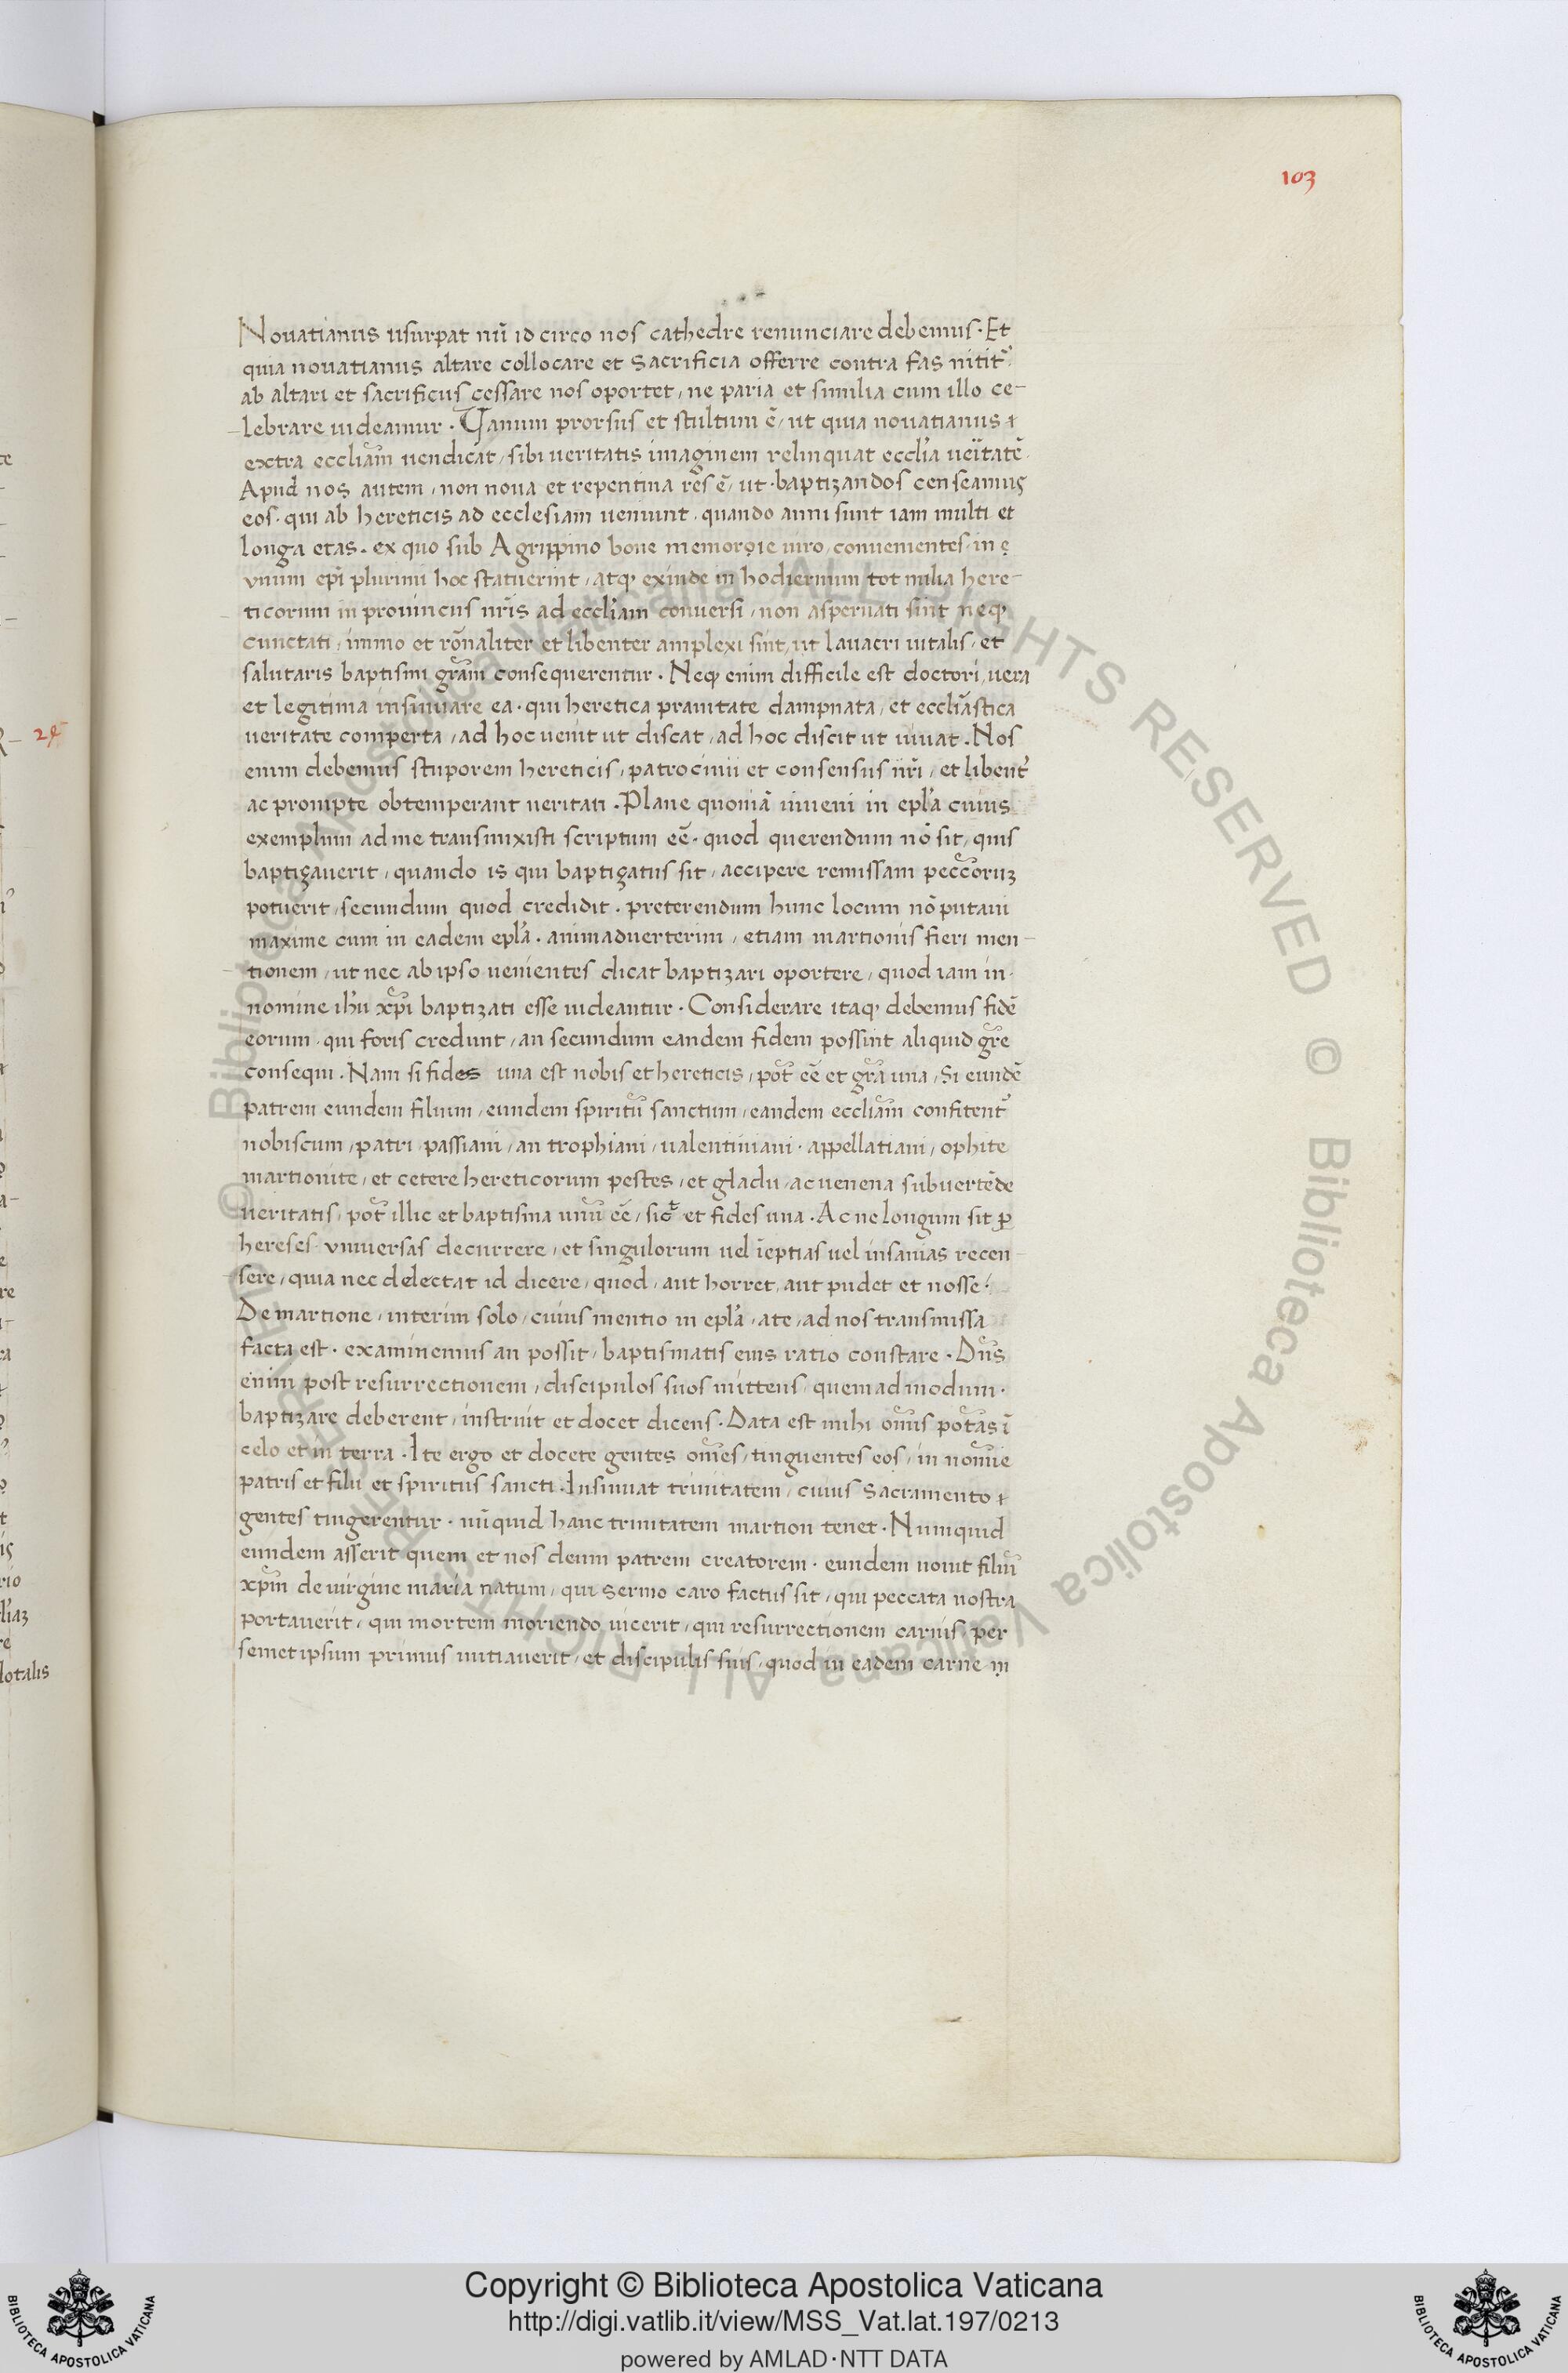 103
Nouatianus usurpat nū id circo nos cathedre renunciare debemus · Et
quia nouatianus altare collocare et sacrificia offerre contra fas nitit᷑
ab altari et sacrificiis cessare nos oportet, ne paria et similia cum illo ce-
lebrare uideamur · Vanum prorsus et stultum ē, ut quia nouatianus
extra eccliam̄ uendicat, sibi ueritatis imaginem relinquat ecclīa ueītatē
Apud nos autem, non noua et repentina res ē, ut · baptizandos censeamus
eos · qui ab hereticis ad ecclesiam ueniunt · quando anni sunt iam multi et
longa etas · ex quo sub Agrippino bone memorie uiro, conuenientes, in
vnum ep̄i plurimi hoc statuerint, atq; exinde in hodiernum tot milia here-
ticorum in prouinciis nr̄is ad eccl̄iam conuersi, non aspernati sint neq;
cunctati, immo et rōnaliter et libenter amplexi sint, ut lauacri uitalis, et
salutaris baptismi grām consequerentur · Neq; enim difficile est doctori, uera
et legitima insinuare ea · qui heretica prauitate dampnata, et eccliāstica
ueritate comperta, ad hoc uenit ut discat, ad hoc discit ut uiuat · Nos
enim debemus stuporem hereticis, patrocinii et consensus nr̄i, et libent᷑
ac prompte obtemperant ueritati · Plane quoniā inueni in epl̄a cuius
exemplum ad me transmixisti scriptum eē · quod querendum nō sit, quis
baptiçauerit, quando is qui baptiçatus sit, accipere remissam peccōruʒ
potuerit, secundum quod credidit · preterendum hunc locum nō putaui
maxime cum in eadem epl̄a · animaduerterim, etiam martionis fieri men-
tionem, ut nec ab ipso uenientes dicat baptizari oportere, quod iam in
nomine ih̄u xp̄i baptizati esse uideantur · Considerare itaq; debemus fidē
eorum · qui foris credunt, an secundum eandem fidem possint aliquid gr̄e
consequi · Nam si fides una est nobis et hereticis, pōt eē et grā una, Si eundē
patrem eundem filium, eundem spiritū sanctum, eandem eccliām confitent᷑
nobiscum, patri, passiani, an trophiani, ualentiniani · appellatiani, ophite
martionite, et cetere hereticorum pestes, et gladii, ac uenena subuertēde
ueritatis, pōt illic et baptisma unū eē, sic᷑ et fides una · Ac ne longum sit ꝑ
hereses vniuersas decurrere, et singulorum uel īeptias uel insanias recen-
sere, quia nec delectat id dicere, quod, aut horret, aut pudet et nosse ·
De martione, interim solo, cuius mentio in epl̄a, ate, ad nos transmissa
facta est · examinemus an possit, baptismatis eius ratio constare · Dn̄s
enim post resurrectionem, discipulos suos mittens, quemadmodum ·
baptizare deberent, instruit et docet dicens · Data est mihi om̄is potās ī
celo et in terra · Ite ergo et docete gentes om̄es, tinguentes eos, in nomīe
patris et filii et spiritus sancti · Insinuat trinitatem, cuius sacramento
gentes tingerentur · nūquid hanc trinitatem martion tenet · Numquid
eundem asserit quem et nos deum patrem creatorem · eundem nouit filiū
xp̄m de uirgine maria natum, qui sermo caro factus sit, qui peccata nostra
portauerit, qui mortem moriendo uicerit, qui resurrectionem carnis, per
semetipsum primus initiauerit, et discipulis suis, quod in eadem carne
24
Copyright © Biblioteca Apostolica Vaticana
http://digi.vatlib.it/view/MSS_Vat.lat.197/0213
powered by AMLAD·NTT DATA
BIBLIOTECA APOSTOLICA VATICANA
BIBLIOTECA APOSTOLICA VATICANA
© Biblioteca Apostolica Vaticana ALL RIGHTS RESERVED
© Biblioteca Apostolica Vaticana ALL RIGHTS RESERVED